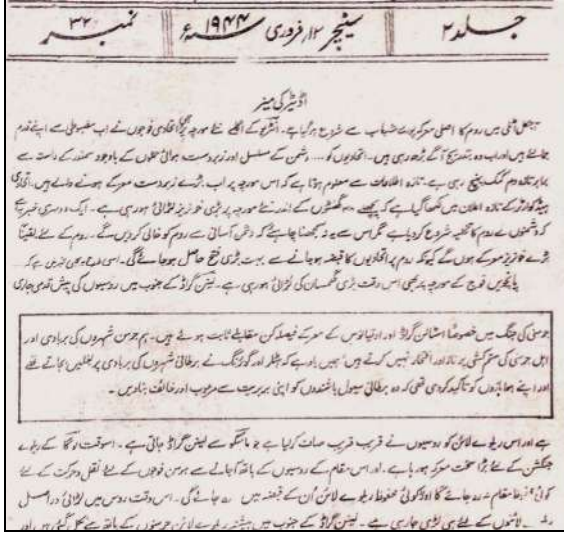 جلد ۲ سنیچر ۱۲ فروری ۱۹۴۴ء نمبر ۳۲
اڈیٹر کی میز
آج کل اٹلی میں روم کا اصلی معرکہ پورے شباب سے شروع ہوگیا ہے۔ انزیو کے اگلے نئے مورچہ پر اتحادی فوجوں نے اب مضبوطی سے اپنے قدم
جمالئے ہیں اور اب وہ بتدریج آگے بڑھ رہی ہیں۔ اتحادیوں کو ۔۔۔ دشمن کے مسلسل اور زبردست ہوائی حملوں کے باوجود سمندر کے راستہ سے
برابر تازہ دم کمک پہنچ رہی ہے۔ تازہ اطلاعات سے معلوم ہوتا ہے کہ اس مورچہ پر اب بڑے زبردست معرکے ہونے والے ہیں۔ اتحادی
ہیڈ کوارٹرز کے تازہ اعلان میں لکھا گیا ہے کہ پچھلے گھنٹوں کے اندر نئے مورچہ پر بڑی خونریز لڑائی ہورہی ہے۔ ایک دوسری خبر ہے
کہ دشمن نے روم کا تخلیہ شروع کردیا ہے مگر اس سے یہ نہ سمجھنا چاہئے کہ دشمن آسانی سے روم کو خالی کردیں گے۔ روم کے لئے یقیناً
بڑے خونریز معرکے ہوں گے کیونکہ روم پر اتحادیوں کا قبضہ ہوجانے سے بہت بڑی فتح حاصل ہوجائے گی۔ اسی طرح
پانچویں فوج کے مورچہ پر بھی اس وقت بڑی گھمسان کی لڑائی ہورہی ہے۔ لینن گراڈ کے جنوب میں روسیوں کی پیش قدمی جاری
جرمنی کی جنگ میں خصوصاً اسٹالن گراڈ اور اوقیانوس کے معرکے فیصلہ کن مقابلے ثابت ہوئے ہیں۔ ہم جرمن شہروں کی بربادی اور
اہل جرمنی کی ستم کشی پر ناز اور افتخار نہیں کرتے ہیں ہمیں یاد ہے کہ ہٹلر اور گوئرنگ نے برطانی شہروں کی بربادی پر بغلیں بجائے تھے
اور اپنے ہوابازوں کو تاکید کردی تھی کہ وہ برطانی سیول باشندوں کو اپنی بربریت سے مرعوب اور خائف بنادیں۔
ہے اور اس ریلوے لائن کو روسیوں نے قریب قریب صاف کرلیا ہے جو ماسکو سے لینن گراڈ جاتی ہے۔ اسوقت لوگا کے ریلوے
جنکشن کے لئے بڑا سخت معرکہ ہورہا ہے۔ اور اس مقام کے روسیوں کے ہاتھ آجانے سے جرمن فوجوں کے لئے نقل و حرکت کے لئے
کوئی مقام نہ رہ جائے گا اور کوئی محفوظ ریلوے لائن اُن کے قبضہ میں نہ رہ جائے گی۔ اس وقت روس میں لڑائی دراصل
ریلوے لائنوں کے لئے ہی لڑی جارہی ہے۔ لینن گراڈ کے جنوب میں بیشتر ریلوے لائن جرمنوں کے ہاتھ سے نکل گئی ہیں اور